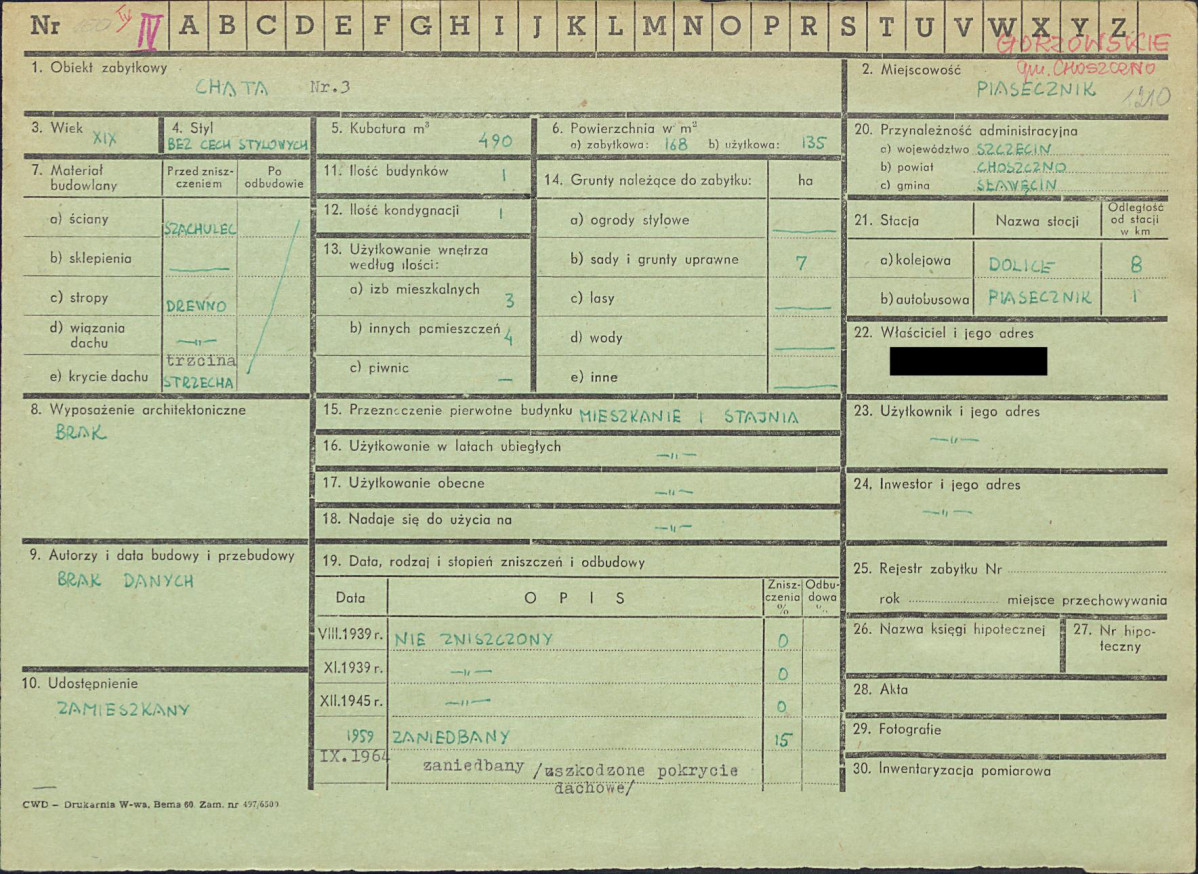 Nr IV A B C D E F G H I J K L M N O P R S T U V W X Y Z
GORZOWSKIE
gm. CHOSZCZNO
1. Obiekt zabytkowy
CHATA Nr.3
2. Miejscowość
PIASECZNIK 1210
3. Wiek XIX
4. Styl
BEZ CECH STYLOWYCH
5. Kubatura m³ 490
6. Powierzchnia w m²
a) zabytkowa: 168 b) użytkowa: 135
7. Materiał budowlany
Przed zniszczeniem
Po odbudowie
a) ściany SZACHULEC
b) sklepienia —
c) stropy DREWNO
d) wiązania dachu —„—
e) krycie dachu trzcina
STRZECHA
8. Wyposażenie architektoniczne
BRAK
9. Autorzy i data budowy i przebudowy
BRAK DANYCH
10. Udostępnienie
ZAMIESZKANY
11. Ilość budynków 1
12. Ilość kondygnacji 1
13. Użytkowanie wnętrza
według ilości:
a) izb mieszkalnych 3
b) innych pomieszczeń 4
c) piwnic —
14. Grunty należące do zabytku: ha
a) ogrody stylowe —
b) sady i grunty uprawne 7
c) lasy —
d) wody —
e) inne —
15. Przeznaczenie pierwotne budynku MIESZKANIE I STAJNIA
16. Użytkowanie w latach ubiegłych —„—
17. Użytkowanie obecne —„—
18. Nadaje się do użycia na —„—
19. Data, rodzaj i stopień zniszczeń i odbudowy
Data OPIS Zniszczenia % Odbudowa %
VIII.1939 r. NIE ZNISZCZONY 0
XI.1939 r. —„— 0
XII.1945 r. —„— 0
1959 ZANIEDBANY 15
IX.1964 zaniedbany /uszkodzone pokrycie
dachowe/
20. Przynależność administracyjna
a) województwo SZCZECIN
b) powiat CHOSZCZNO
c) gmina SŁAWĘCIN
21. Stacja Nazwa stacji Odległość od stacji w km
a) kolejowa DOLICE 8
b) autobusowa PIASECZNIK 1
22. Właściciel i jego adres
23. Użytkownik i jego adres
—„—
24. Inwestor i jego adres
—„—
25. Rejestr zabytku Nr
rok miejsce przechowywania
26. Nazwa księgi hipotecznej
27. Nr hipoteczny
28. Akta
29. Fotografie
30. Inwentaryzacja pomiarowa
CWD – Drukarnia W-wa, Bema 60. Zam. nr 497/6509